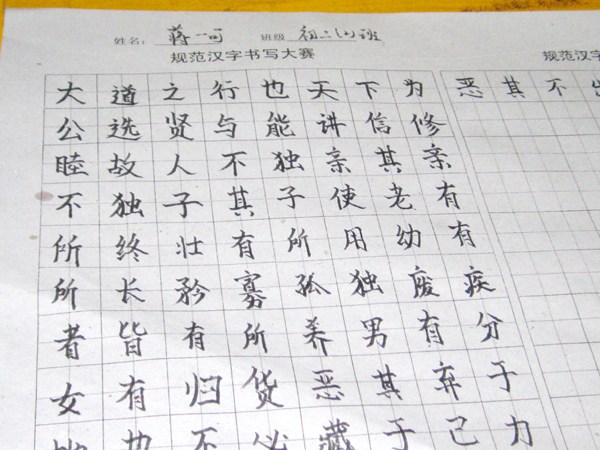 姓名: 蒋一可 班级 初二(1)班
规范汉字书写大赛
规范汉字
大道之行也天下为
公选贤与能讲信修
睦故人不独亲其亲
不独子其子使老有
所终壮有所用幼有
所长矜寡孤独废疾
者皆有所养男有分
女有归货恶其弃于
地也不必藏于己力
恶其不出